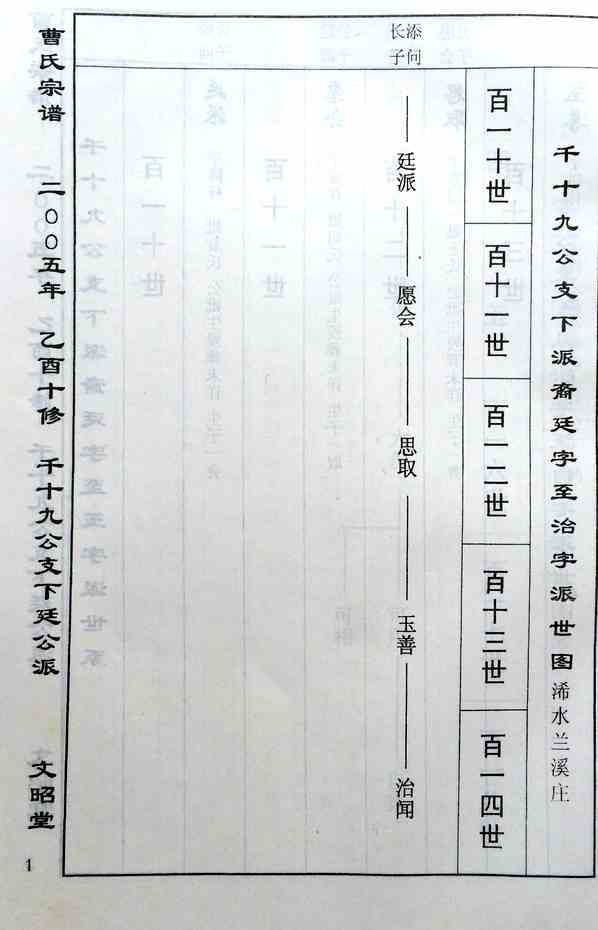 千十九公支下派裔廷字至治字派世图 浠水兰溪庄
百一十世
百十一世
百一二世
百十三世
百一四世
添问
长子
廷派
愿会
思取
玉善
治闻
曹氏宗谱 二〇〇五年 乙酉十修 千十九公支下廷公派 文昭堂
1